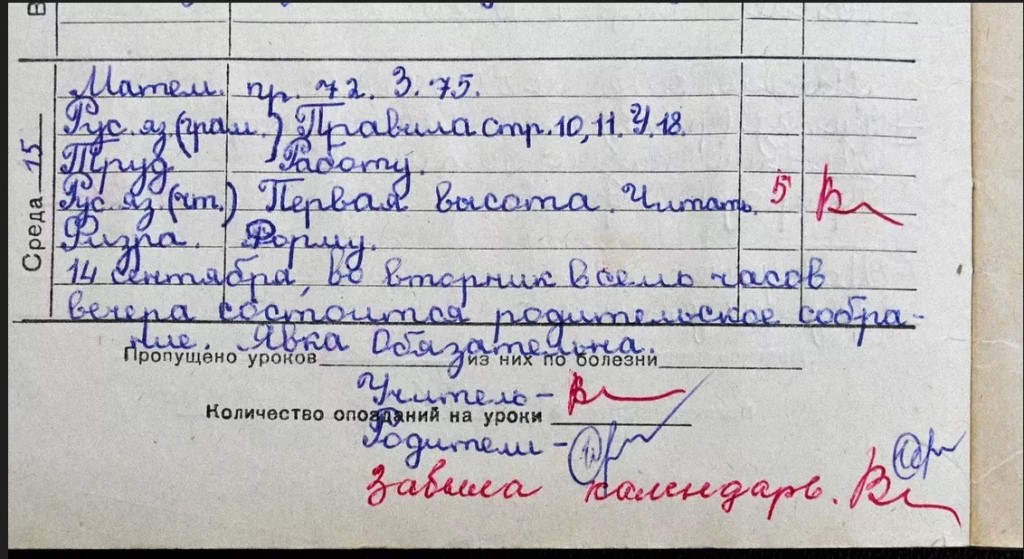 В
Среда 15
Матем. пр. 72. З. 75.
Рус. яз (грам.) Правила стр. 10, 11. У. 18.
Труд Работу.
Рус. яз (чт.) Первая высота. Читать. 5
Физра. Форму.
14 сентября, во вторник в семь часов
вечера состоится родительское собра-
ние. Явка Обязательна.
Пропущено уроков из них по болезни
Учитель -
Количество опозданий на уроки
Родители -
Забыла календарь.